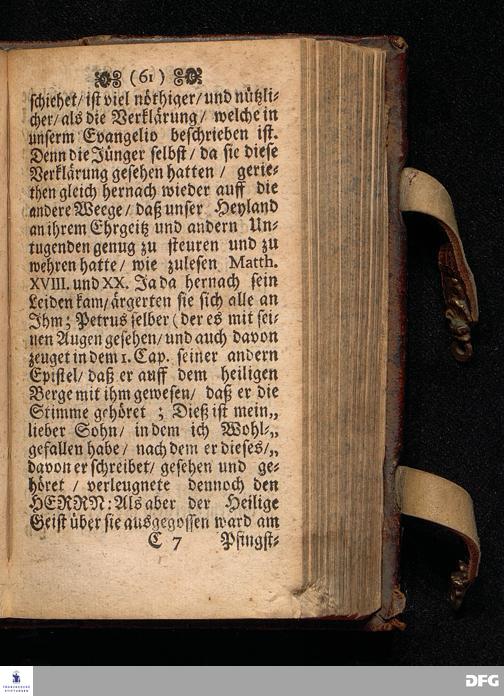 (61)
schiehet/ ist viel nöthiger/ und nützli-
cher/ als die Verklärung/ welche in
unserm Evangelio beschrieben ist.
Denn die Jünger selbst/ da sie diese
Verklärung gesehen hatten/ gerie-
then gleich hernach wieder auff die
andere Weege/ daß unser Heyland
an ihrem Ehrgeitz und andern Un-
tugenden genug zu steuren und zu
wehren hatte/ wie zulesen Matth.
XVIII. und XX. Ja da hernach sein
Leiden kam/ ärgerten sie sich alle an
Ihm; Petrus selber (der es mit sei-
nen Augen gesehen/ und auch davon
zeuget in dem 1. Cap. seiner andern
Epistel/ daß er auff dem heiligen
Berge mit ihm gewesen/ daß er die
Stimme gehöret; Dieß ist mein„
lieber Sohn/ in dem ich Wohl-„
gefallen habe/ nach dem er dieses/„
davon er schreibet/ gesehen und ge-
höret/ verleugnete dennoch den
HERRN: Als aber der Heilige
Geist über sie ausgegossen ward am
C 7 Pfingst-
FRANCKESCHE
STIFTUNGEN
DFG